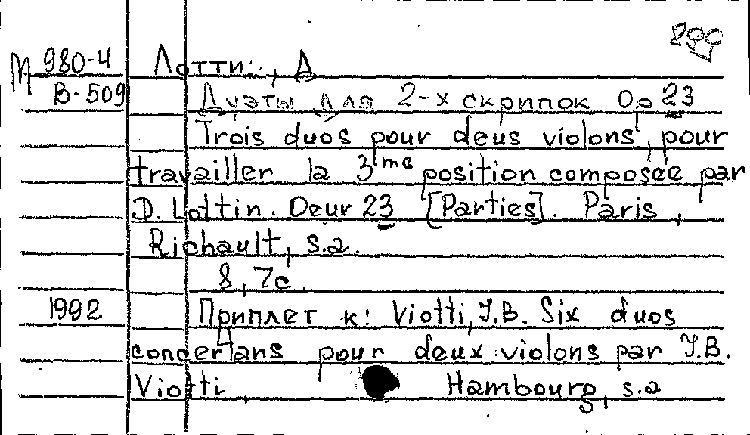 299
М 980-4 Лотти, Д
В-509 Дуэты для 2-х скрипок Op 23
Trois duos pour deus violons, pour
travailler la 3me position composée par
D. Lottin. Oeur 23 [Parties]. Paris,
Richault, s.a.
8,7с.
1992 Приплет к: Viotti, J.B. Six duos
concertans pour deux violons par J.B.
Viotti Hambourg, s.a